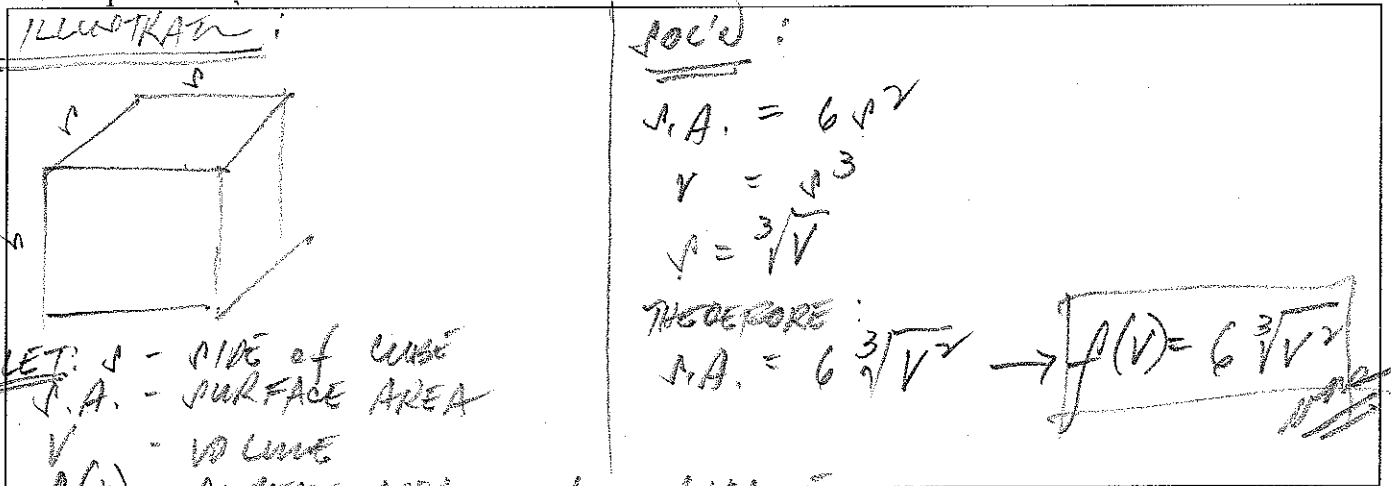 ILLUSTRATE :
s
s
s
LET: s - SIDE of CUBE
S.A. - SURFACE AREA
V - VOLUME
SOL'N :
S.A. = 6 s²
V = s³
s = ∛V
THEREFORE :
S.A. = 6 ∛V² → f(V) = 6 ∛V²